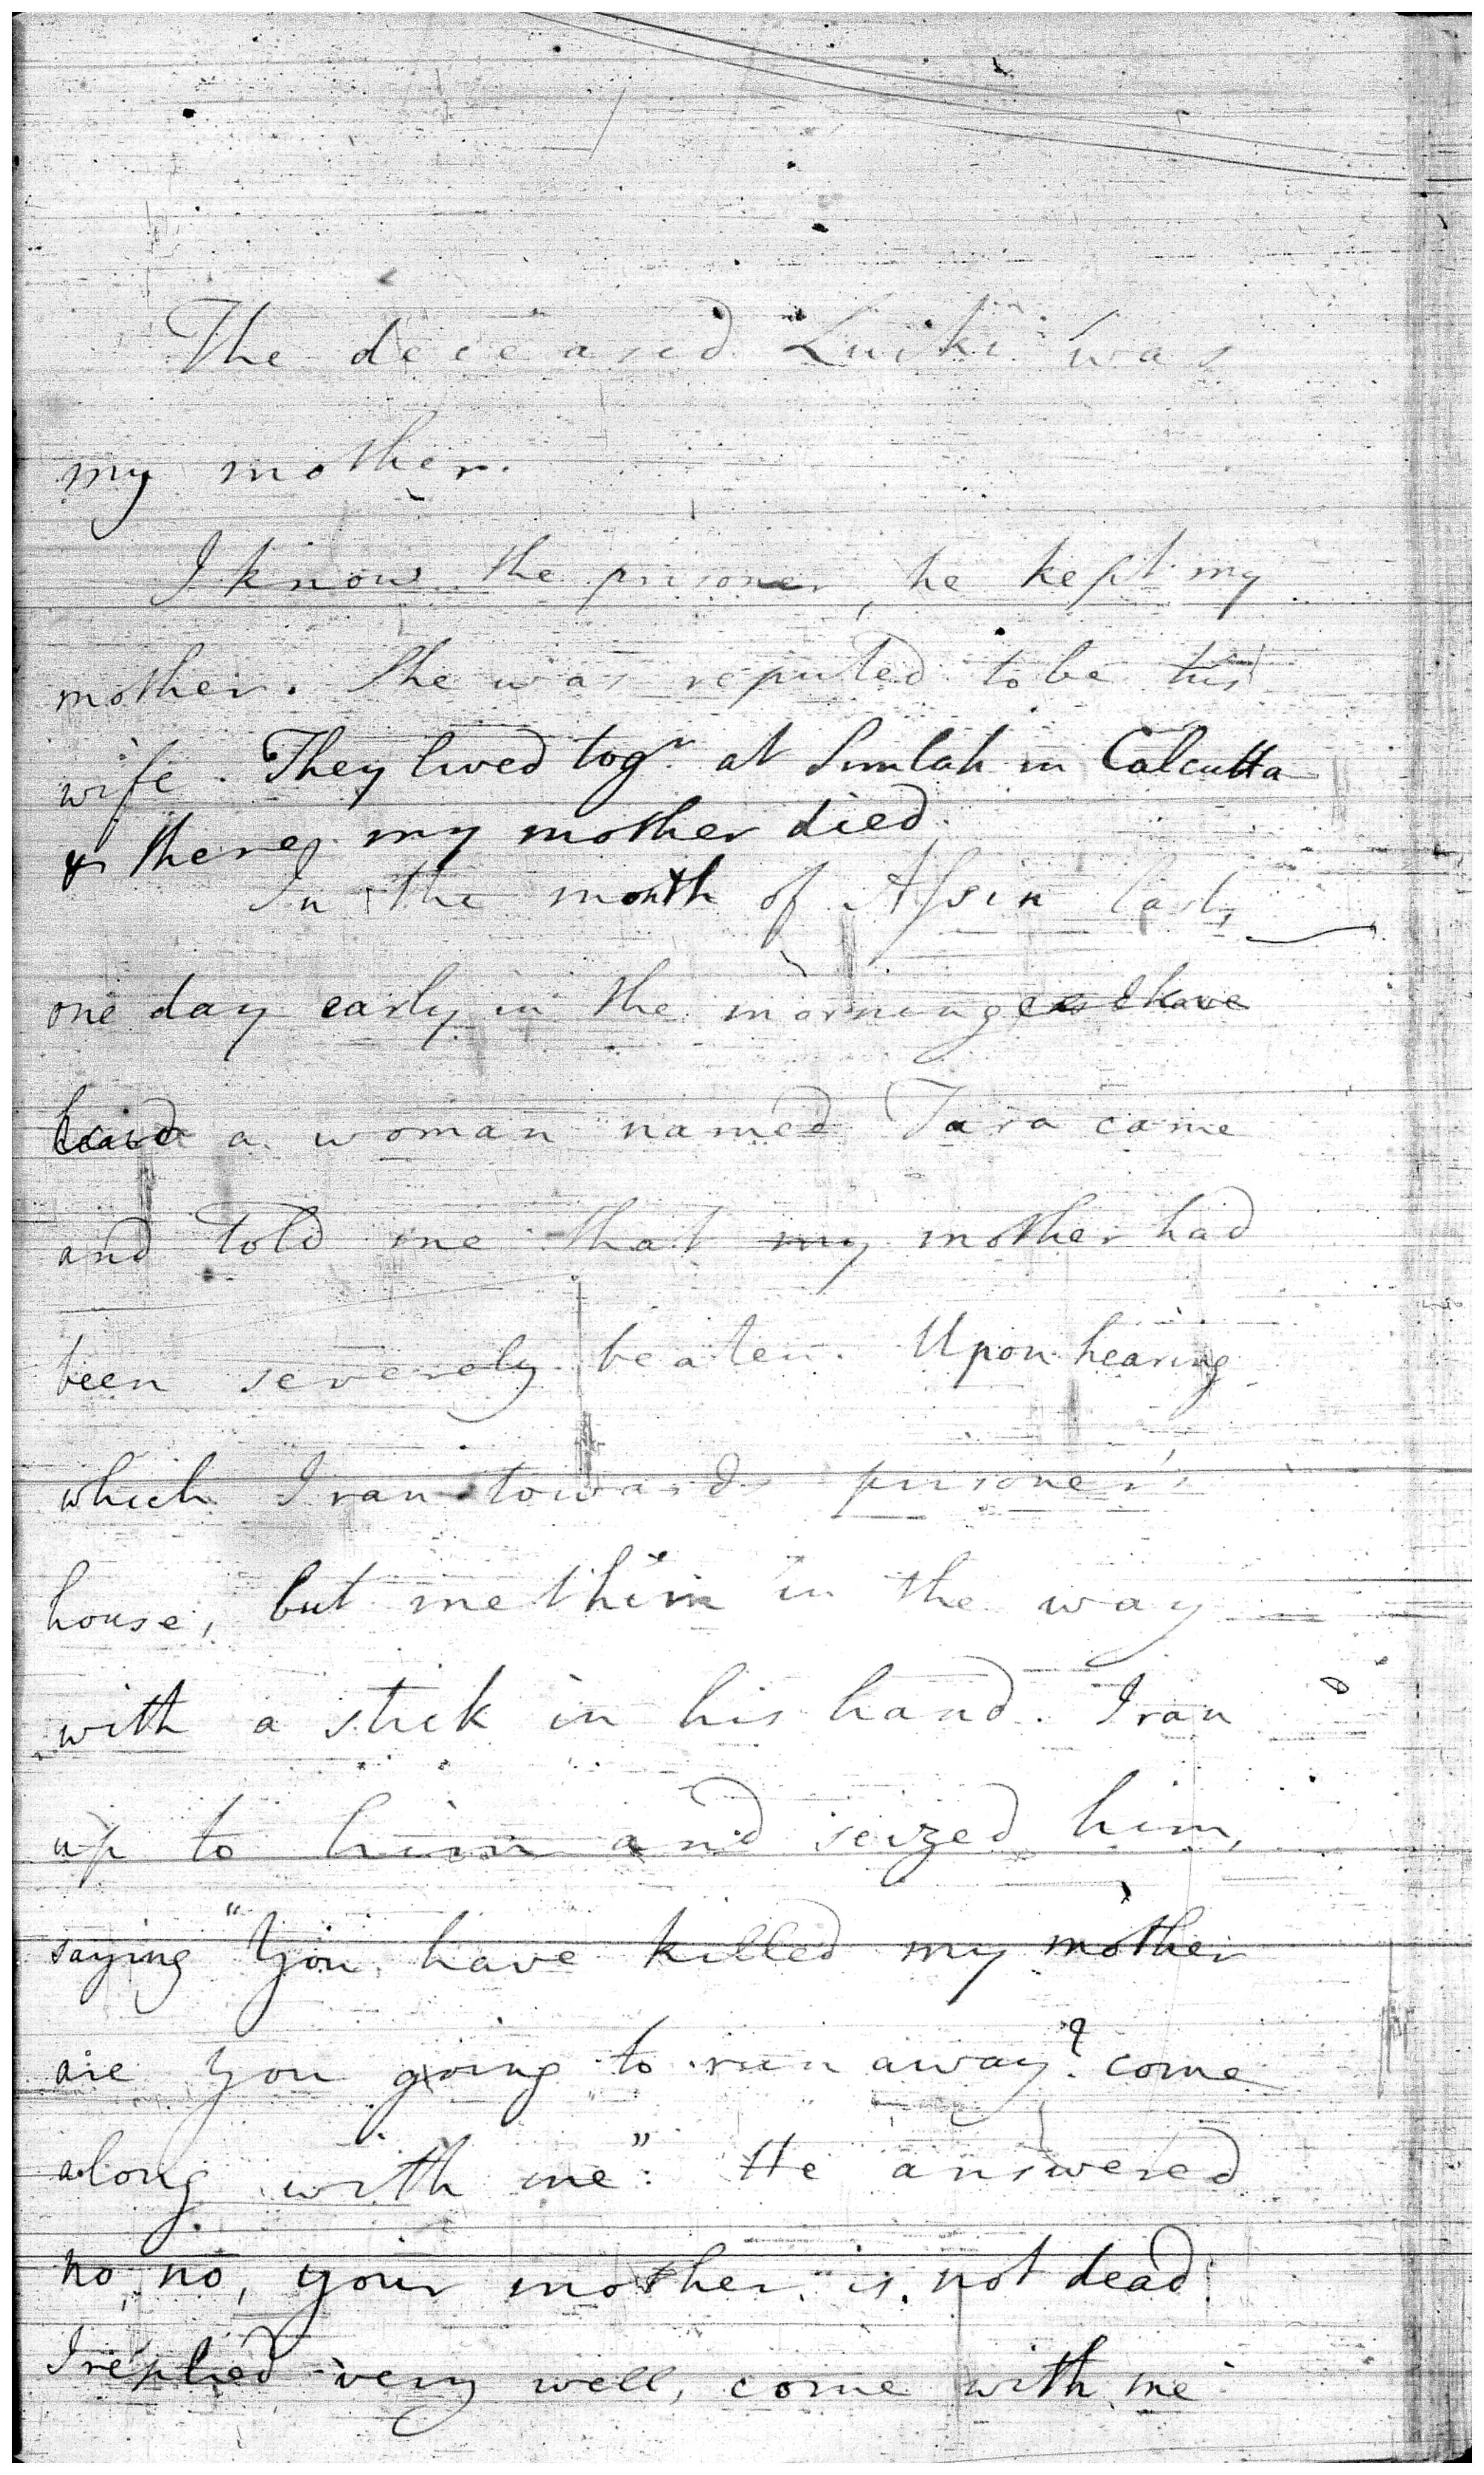 The deceased Lucki was
my mother.
I know the prisoner, he kept my
mother. She was reputed to be his
wife. They lived togr at Simlah in Calcutta
& there my mother died.
In the month of Assin last,
one day early in the morning as I have
heard a woman named Tara came
and told me that my mother had
been severely beaten. Upon hearing
which I ran towards prisoner's
house, but met him in the way
with a stick in his hand. I ran
up to him and seized him,
saying "You have killed my mother
are you going to run away? come
along with me". He answered
no, no, your mother is not dead.
I replied very well, come with me